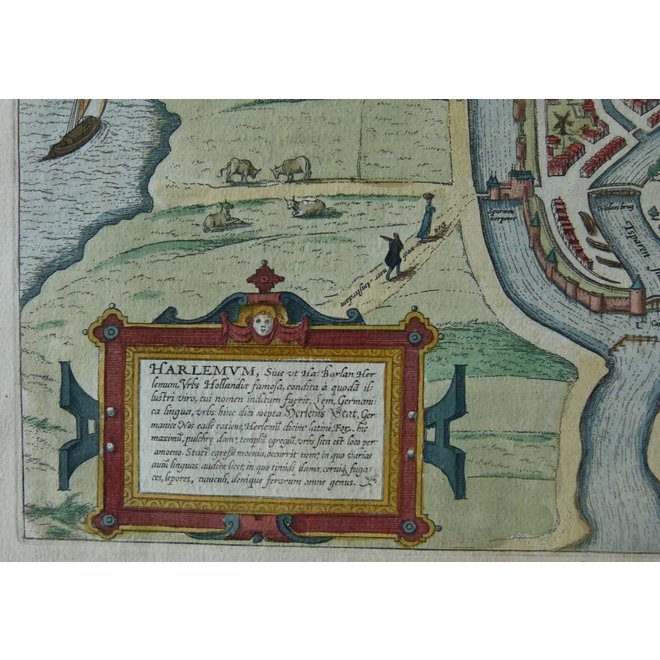 HARLEMVM, Siue vt Ha: Barlan Her
lemum, Vrbs Hollandiæ famosa, condita à quodā il-
lustri viro, cui nomen inditum fuerit, Lem, Germani-
ca lingua, vrbs hinc dici coepta Herlems Stat, Ger
manice Nos eadē ratione, Herlemū dicimꝰ latine, For, hic
maximū, pulchrū domꝰ, templū egregiū, vrbs sita est loco per
amoeno. Statī egressū moenia, occurrit nemꝰ, in quo varias
auiū linguas audire licet, in quo timidi damæ, cerui, fuga-
ces, lepores, cuniculi, denique ferarum omne genus.